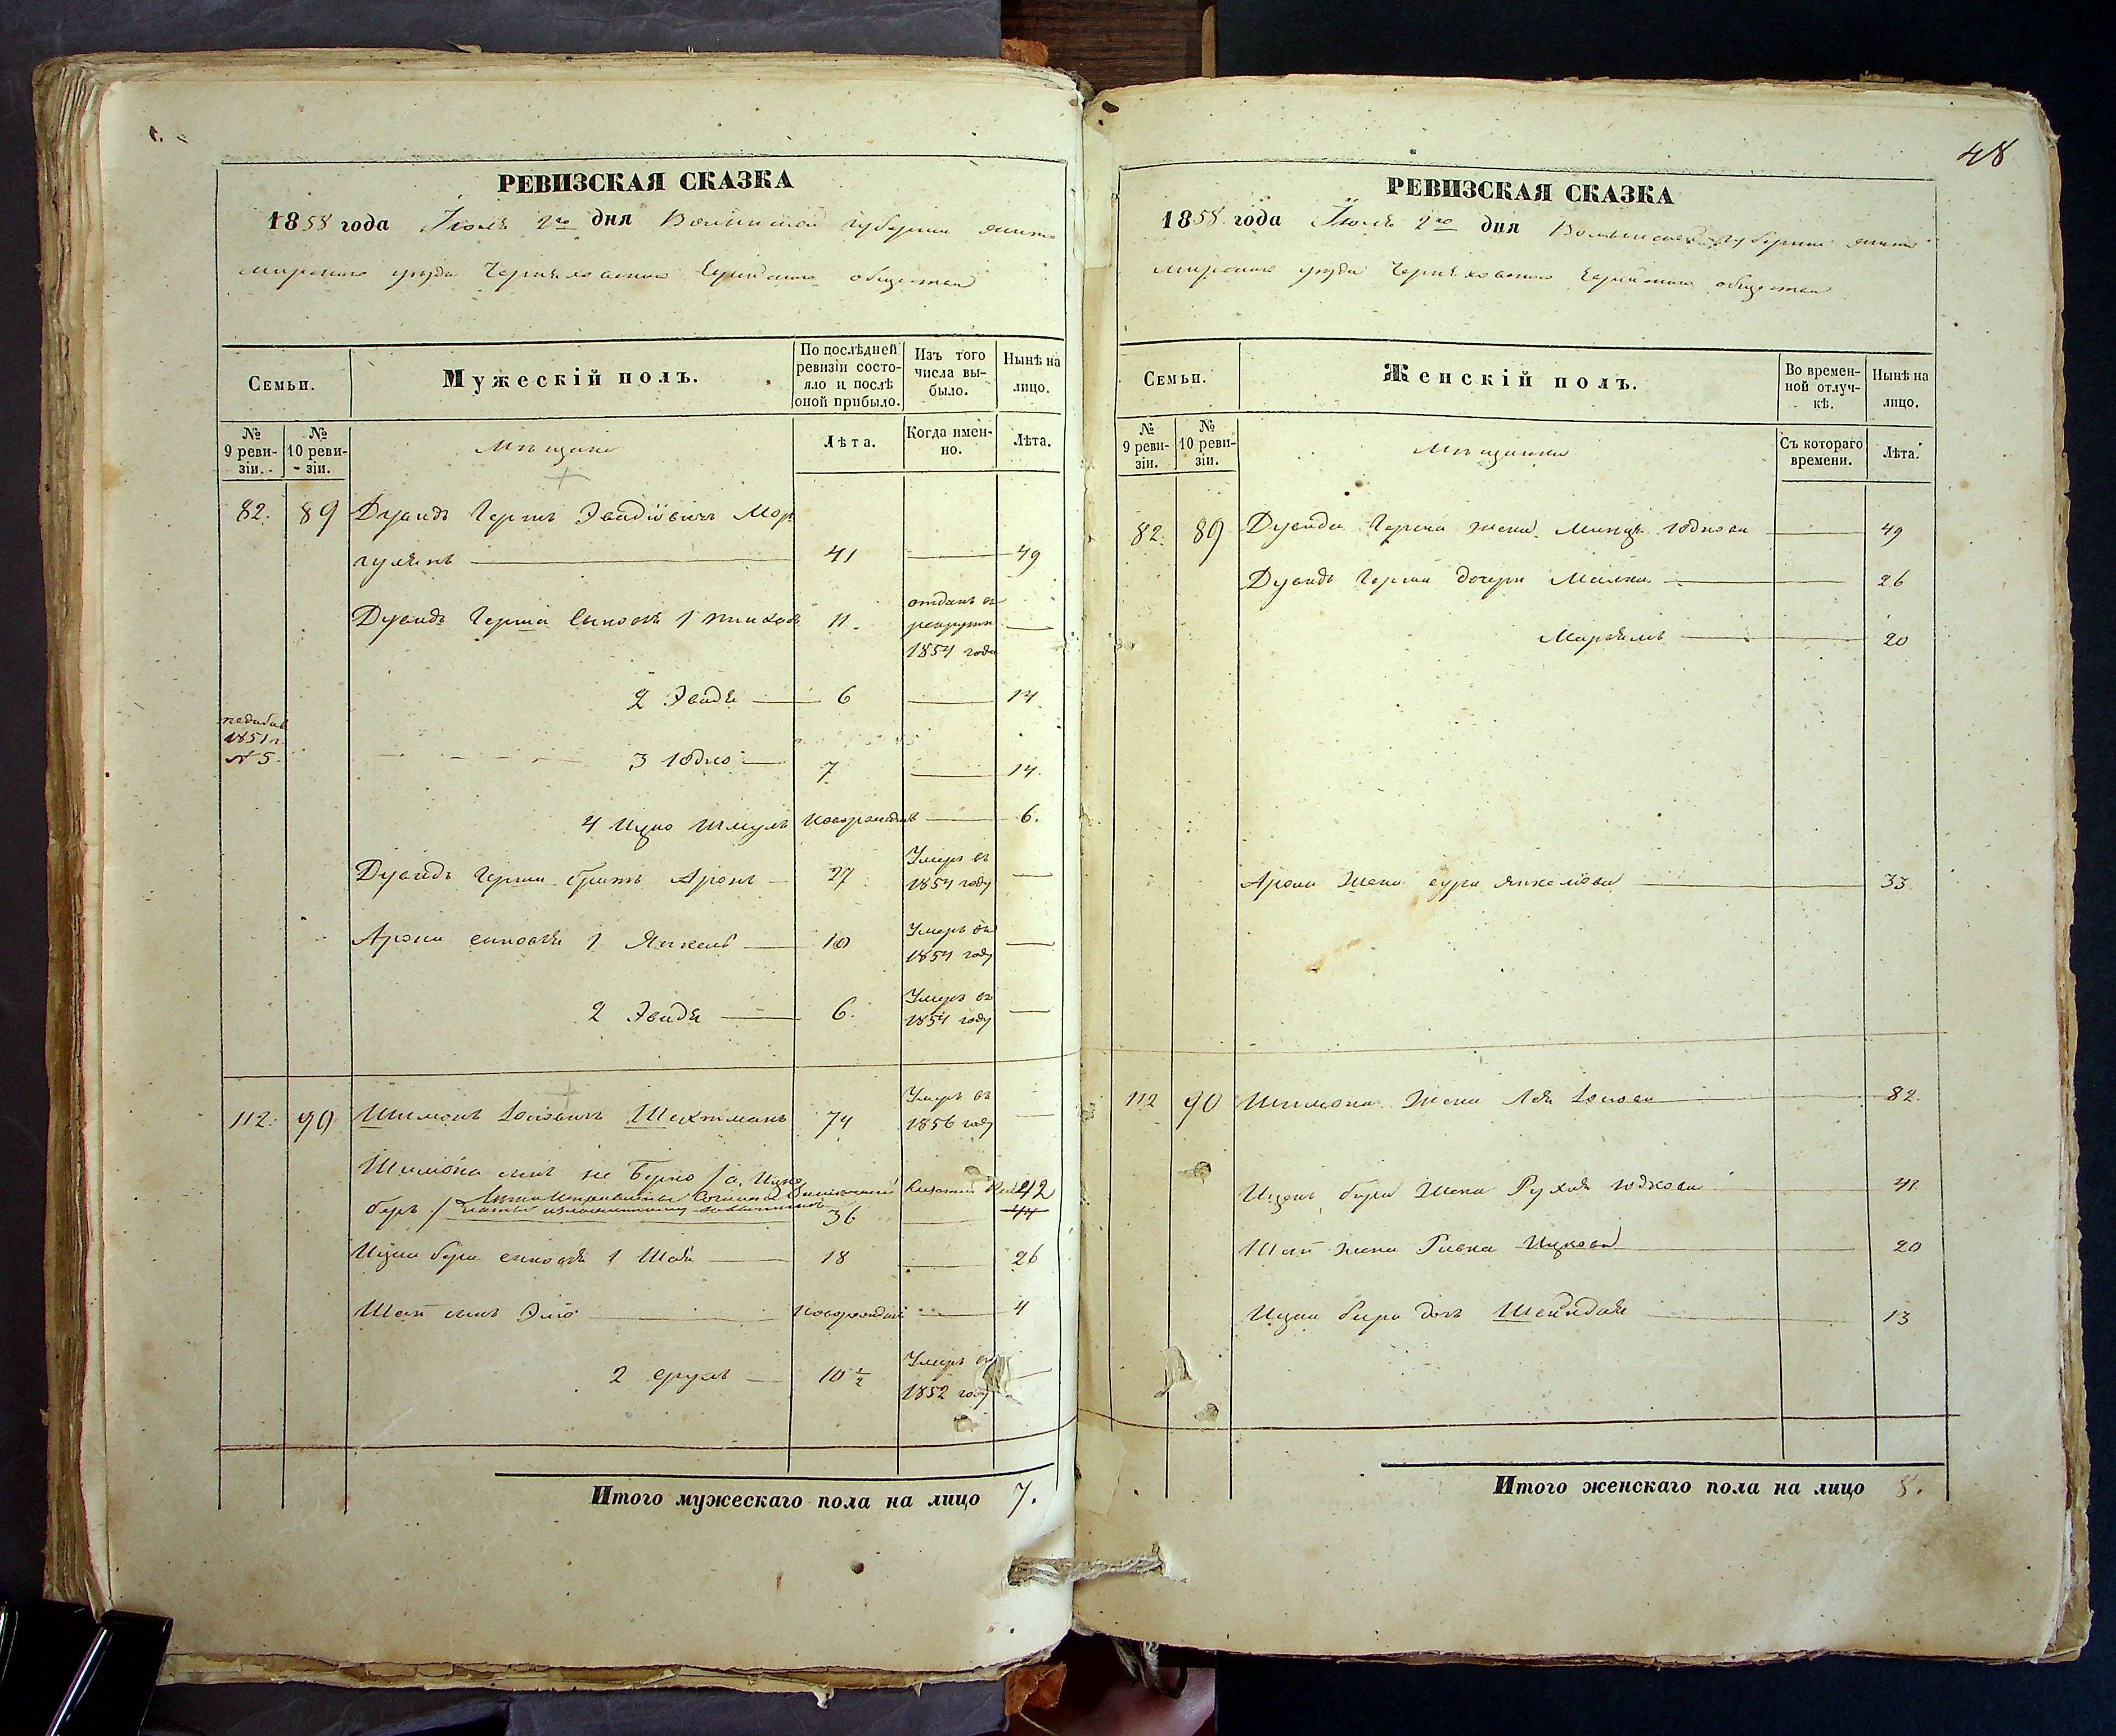 48
РЕВИЗСКАЯ СКАЗКА
1858 года Іюля 2го дня Волынской губерніи Жито
мирскаго уѣзда Черняховскаго Еврейскаго общества
Семьи.
Мужескій полъ.
По послѣдней ревизіи состо-
яло и послѣ
оной прибыло.
Изъ того
числа вы-
было.
Нынѣ на
лицо.
№
9 реви-
зіи.
№
10 реви-
зіи.
Мѣщане
Лѣта.
Когда имен-
но.
Лѣта.
82. 89 Дувидъ Гершъ Эвадіовичъ Мар
гулисъ 41 49
Дувидъ Герша сыновья 1 11. отданъ въ
рекруты
1854 года
2 Эвадя 6 14
1851 г.
№ 5.
3 Юдко 7 14.
4 Ицко Шмуль новорожденъ 6.
Дувидъ Герша братъ Аронъ 27 Умеръ въ
1854 году
Арона сыновья 1 Янкель 10 Умеръ въ
1854 году
2 Эвадя 6. Умеръ въ
1854 году
112. 90 Шимонъ Іосіовичъ Шехтманъ 74 Умеръ въ
1856 году
Шимона сынъ не Берко /а, Ицко
беръ/ 36 42
44
Ицка бера сыновья 1 Шая 18 26
Шаи сынъ Эліо новорожденъ 4
2 Сруль 10 ½ Умеръ въ
1852 году
Итого мужескаго пола на лицо 7.
РЕВИЗСКАЯ СКАЗКА
1858 года Іюля 2го дня Волынской губерніи Жито
мирскаго уѣзда Черняховскаго Еврейскаго общества
Семьи.
Женскій полъ.
Во времен-
ной отлуч-
кѣ.
Нынѣ на
лицо.
№
9 реви-
зіи.
№
10 реви-
зіи.
Мѣщанки
Съ котораго
времени.
Лѣта.
82. 89 Дувида Герша жена Минця Юдкова 49
Дувидъ Герша дочери Малка 26
Маріямъ 20
Арона жена Сура Янкеліова 33
112 90 Шимона жена Лея Іосіова 82.
Ицекъ бера жена Рухля Юдкова 41
Шаи жена Ривка Ицкова 20
Ицка бера дочь Шейндля 13
Итого женскаго пола на лицо 8.